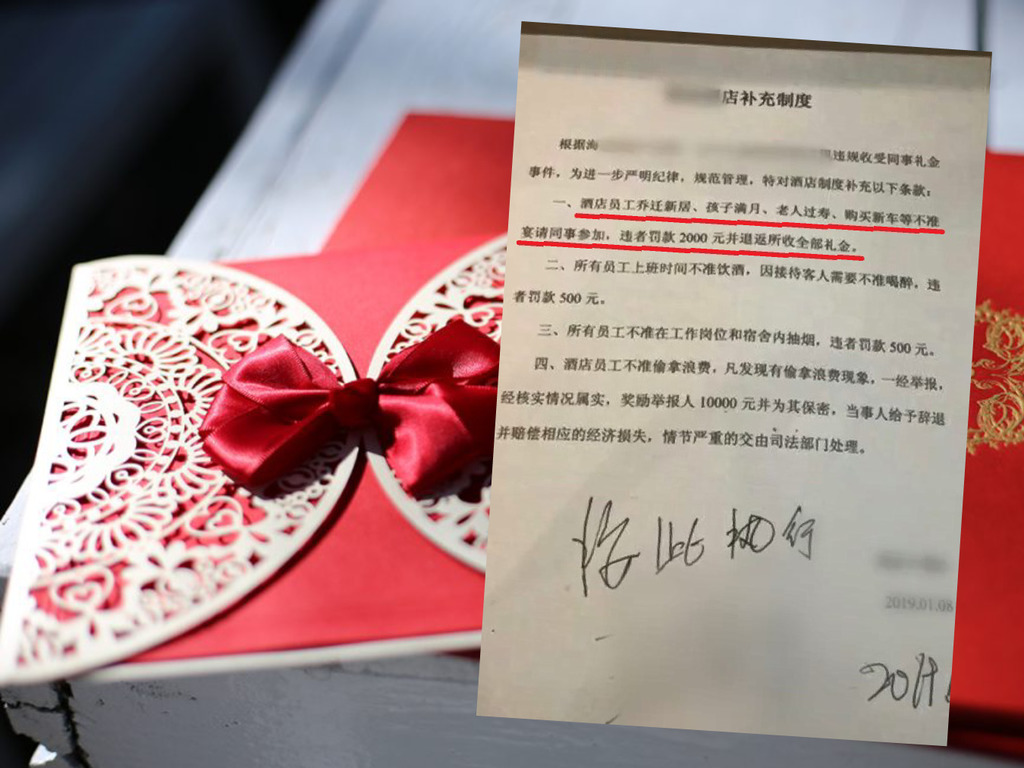 店补充制度
根据海 违规收受同事礼金
事件，为进一步严明纪律，规范管理，特对酒店制度补充以下条款：
一、酒店员工乔迁新居、孩子满月、老人过寿、购买新车等不准
宴请同事参加，违者罚款 2000 元并退返所收全部礼金。
二、所有员工上班时间不准饮酒，因接待客人需要不准喝醉，违
者罚款 500 元。
三、所有员工不准在工作岗位和宿舍内抽烟，违者罚款 500 元。
四、酒店员工不准偷拿浪费，凡发现有偷拿浪费现象，一经举报，
经核实情况属实，奖励举报人 10000 元并为其保密，当事人给予辞退
并赔偿相应的经济损失，情节严重的交由司法部门处理。
按此执行
2019.01.08